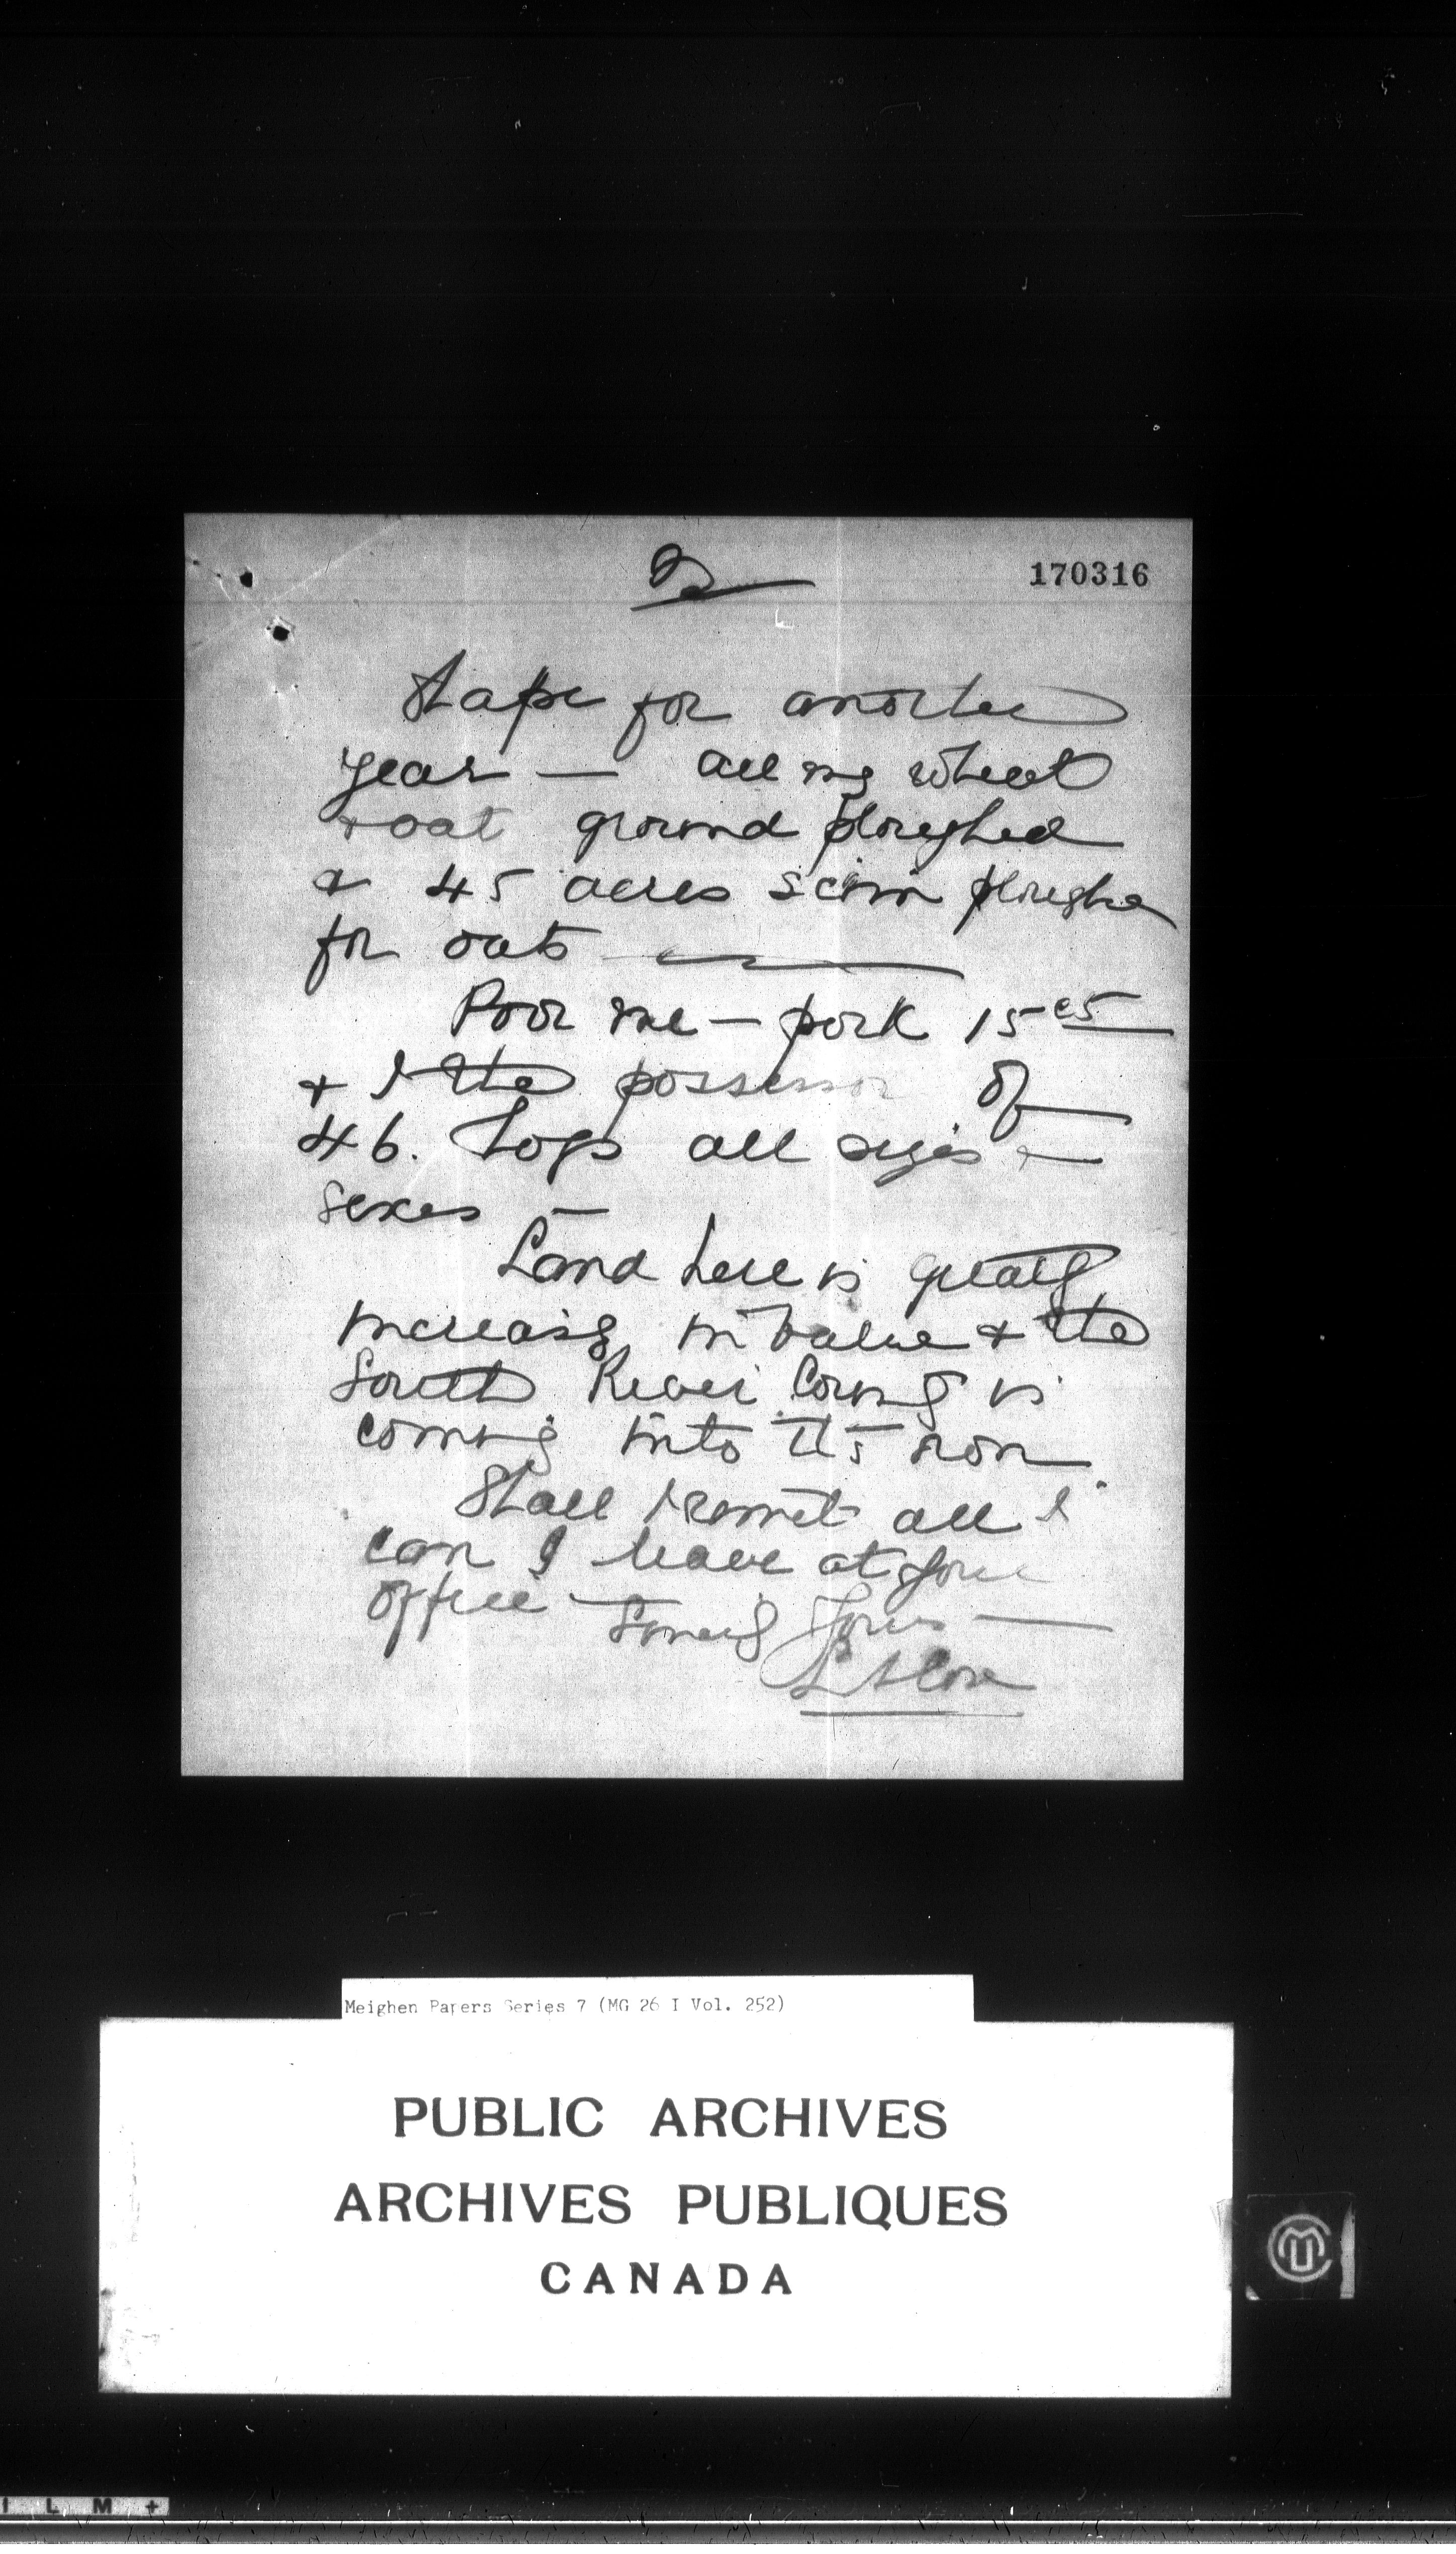 2
170316
Shape for another
year — all my wheat
+ oat ground ploughed
& 45 acres scim ploughed
for oats —
Poor me — pork 15 cts
+ I the possessor of
46. hogs all sizes +
sexes —
Land here is greatly
increasing in value + the
South River County is
coming into its own
Shall remit all I
can I leave at your
office —
Yours —
Meighen Papers Series 7 (MG 26 I Vol. 252)
PUBLIC ARCHIVES
ARCHIVES PUBLIQUES
CANADA
I L M +